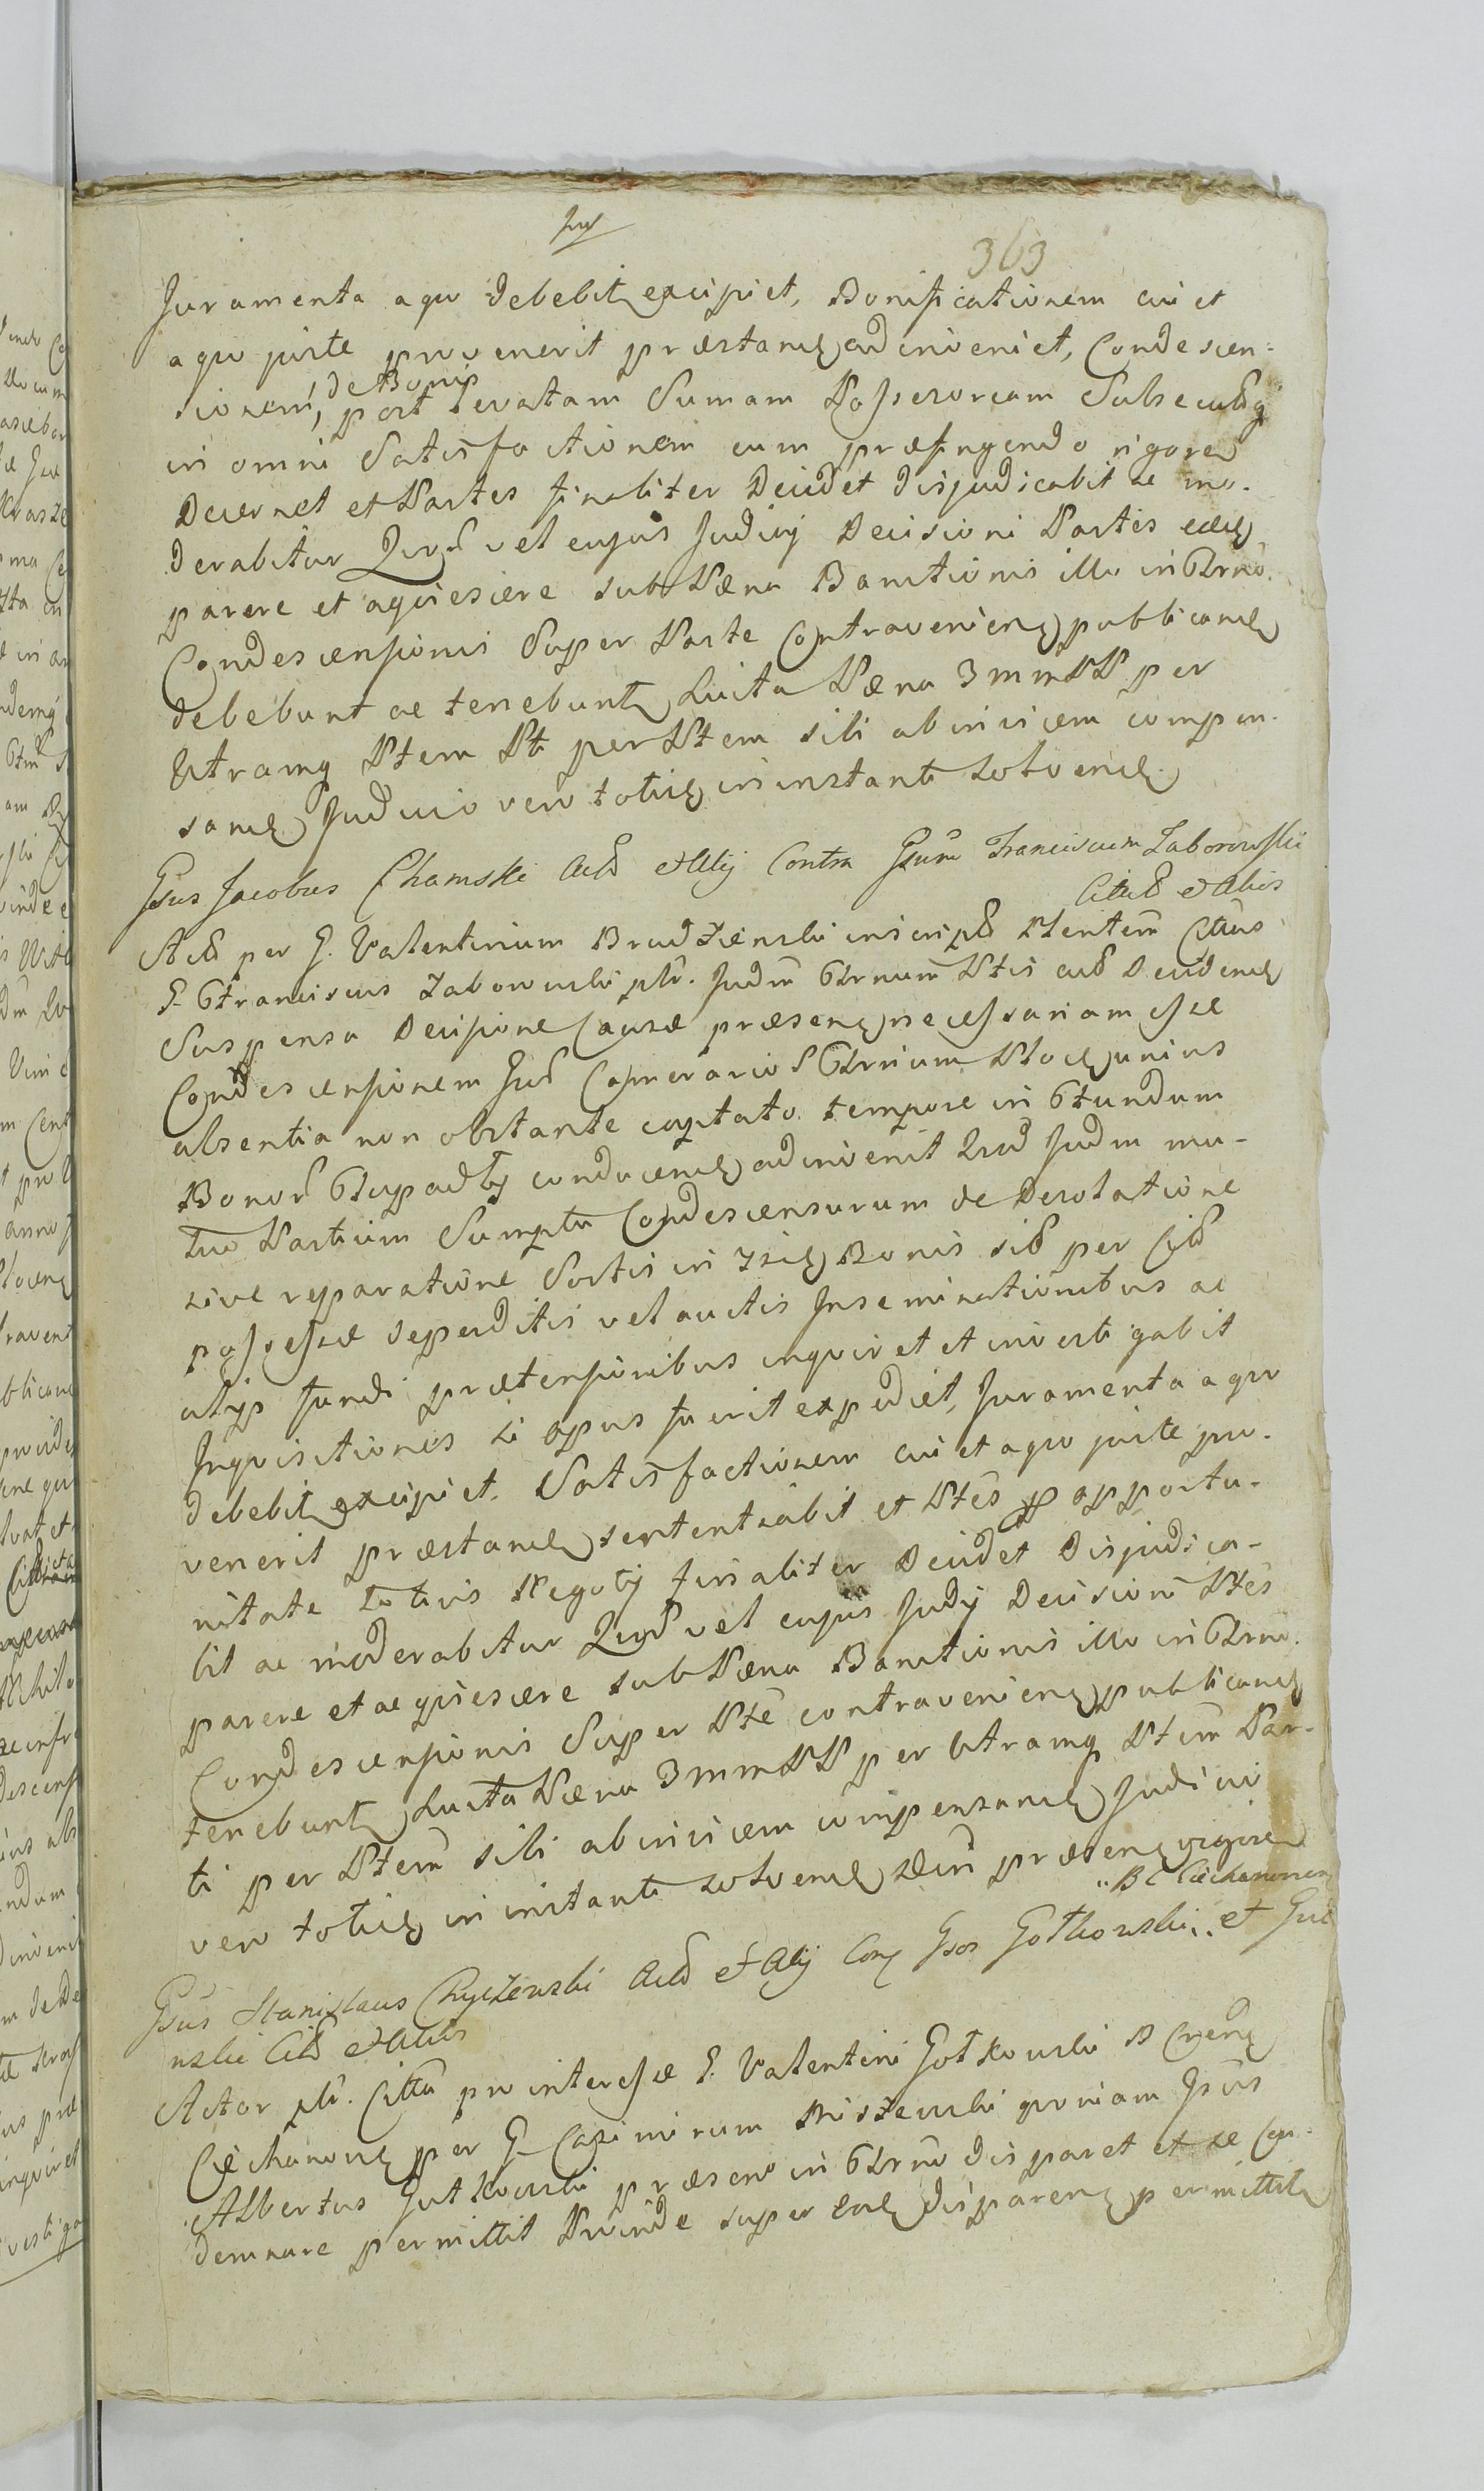 363
Juramenta a quo debebit excipiet, Bonificationem cui et
a quo juste provenerit præstand adinveniet, Condescen-
de Bonis
sionem, post levatam Sumam Possessoream Subsecutq
in omni Satisfactionem cum præfingendo rigore
Decernet et Partes finaliter Decidet disjudicabit ac mo-
derabitur Qurd vel cujus Judicij Decisioni Partes eædem
parere et aquiescere sub Pæna Banitionis illo in Gtrno
Condescensionis Super Parte Contraveniend publicand
debebunt ac tenebunt Luita Pæna 3mmPP per
Utramq Ptem Pti per Ptem sibi ab invicem compen-
sand Judicio vero toties in instanti solvend
Gsus Jacobus Chamski Actd et Alij Contra Gsum Franciscum Zaborowski
Citatd et Alios
Actd per G. Valentinum Brudzienski inscriptd Ptentem Cittus
G. Franciscus Zaborowski ptr. Judm Gtrnum Ptis Decidend
Suspensa Decisione Causæ præsend necessariam esse
Condescensionem Jud Camerario Gtrnium Ploc unius
absentia non obstante captato tempore in Gtundum
Bonor Glupadly conducend adinvenit Qrd Judm mu-
tuo Partium Sumptu Condescensurum de Desolatione
sive reparatione Sortis in Bonis sid per Citd
possessæ deperditis vel auctis Inseminationibus ac
alijs fundi prætensionibus inquiret et investigabit
Inquisitiones si opus fuerit expediet, Juramenta a quo
debebit excipiet. Satisfactionem cui et a quo juste pro-
venerit præstand sententiabit et Ptes p opportu-
nitate totius Negotij finaliter Decidet Disjudica-
bit ac moderabitur Qurd vel cujus Judij Decisioni Ptes
parere et acquiescere sub Pæna Banitionis illo in Gtrno
Condescensionis Super Pte contraveniend publicand
tenebunt Luita Pæna 3mmPP per Utramq Ptem Par-
ti per Ptem sibi ab invicem compensand Judicio
vero toties in instanti solvend præsend vigore
B C Ciechanonen
Gsus Stanislaus Chyczewski Actd et Alij Con Gsos Gotkowski et Gui
nski Citd et Alios
Actor ptr. Citta pro interesse G. Valentini Gotkowski B
Ciechanov per G. Casimirum Miszewski quoniam Gsus
Albertus Gutkowski præsens in Gtrno disparet et se con-
demnare permittit Proinde super disparen permitten